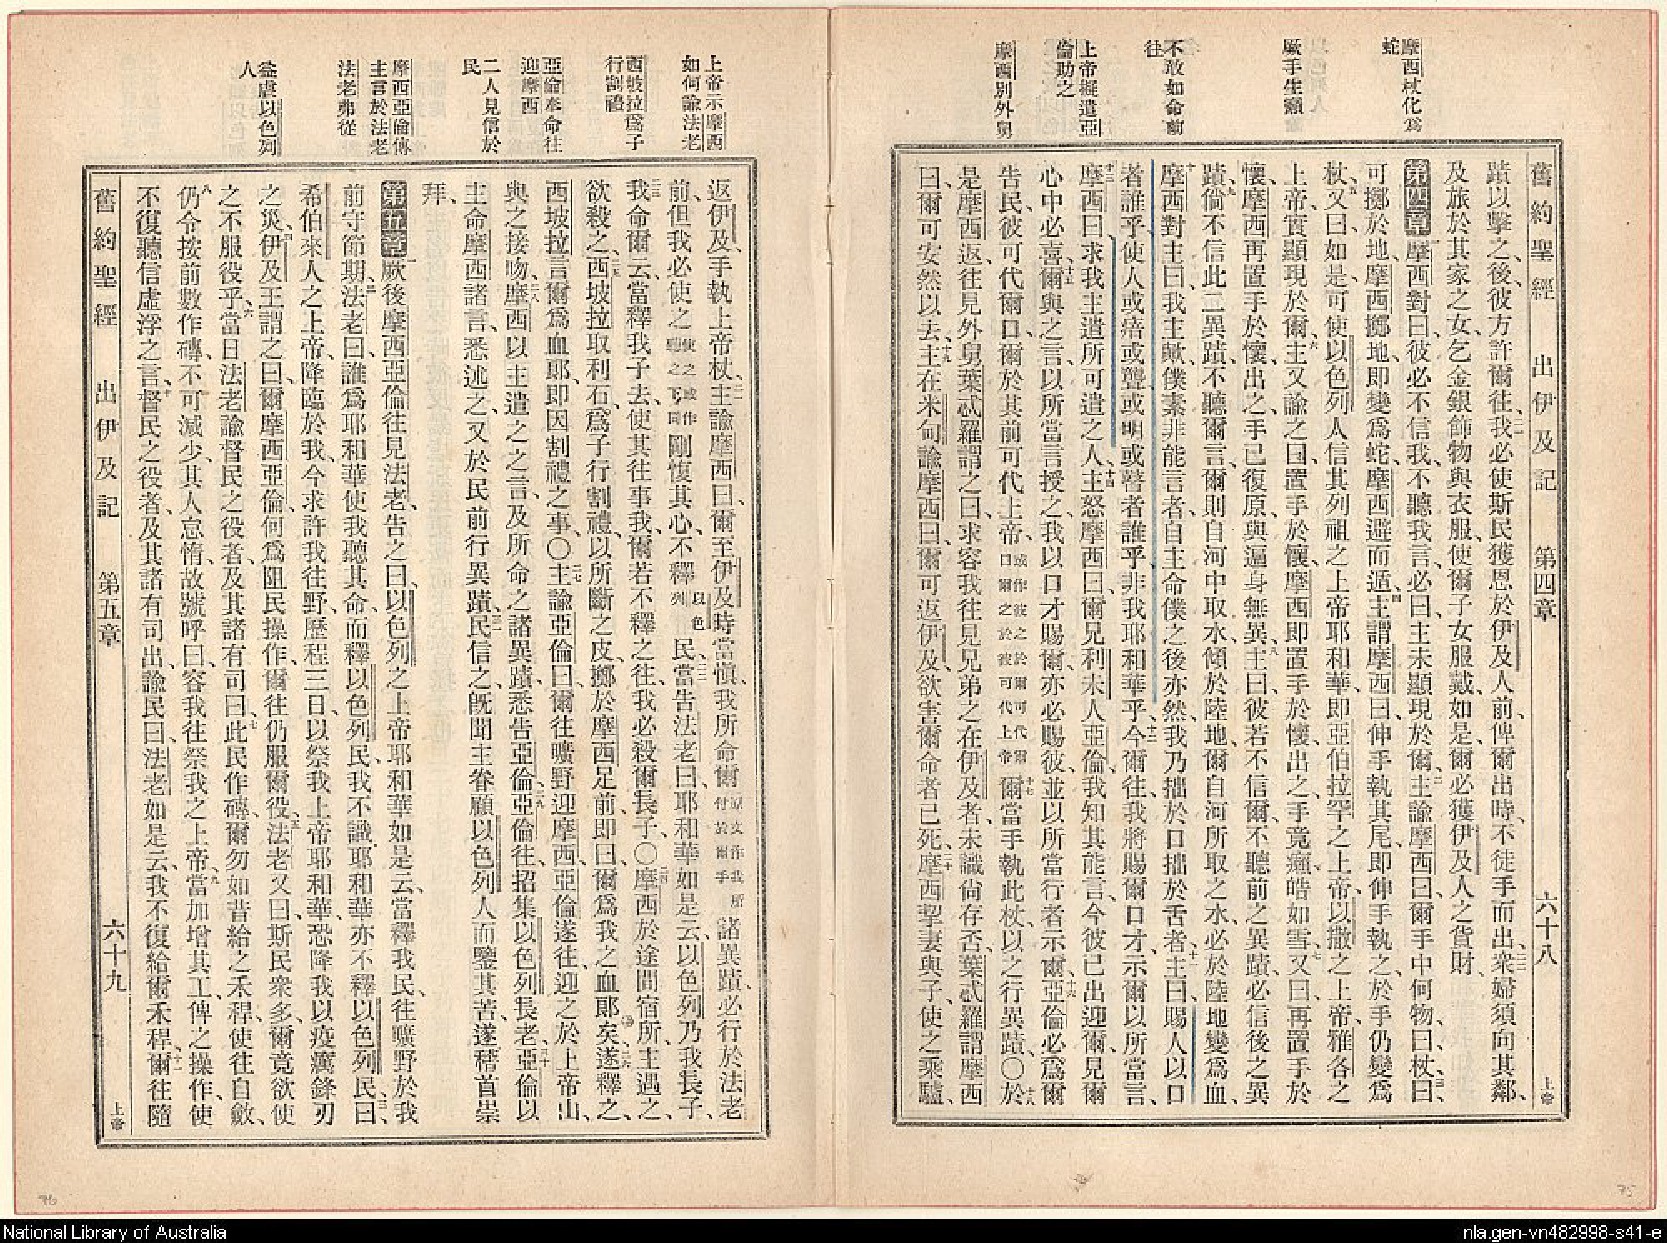 摩西杖化爲
蛇
厥手生癩
不敢如命前
往
上帝擬遣亞
倫助之
摩西別外舅
舊約聖經 出伊及記 第四章 六十八 上帝
蹟以擊之、後彼方許爾往、我必使斯民獲恩於伊及人前、俾爾出時、不徒手而出、衆婦須向其鄰、
及旅於其家之女、乞金銀飾物與衣服、使爾子女服戴、如是、爾必獲伊及人之貨財、
第四章 摩西對曰、彼必不信我、不聽我言、必曰、主未顯現於爾、主諭摩西曰、爾手中何物、曰、杖、曰、
可擲於地、摩西擲地、即變爲蛇、摩西避而遁、主謂摩西曰、伸手執其尾、即伸手執之、於手仍變爲
杖、又曰、如是、可使以色列人信其列祖之上帝耶和華、即亞伯拉罕之上帝、以撒之上帝、雅各之
上帝、實顯現於爾、主又諭之曰、置手於懷、摩西即置手於懷、出之、手竟癩、皓如雪、又曰、再置手於
懷、摩西再置手於懷、出之、手已復原、與遍身無異、主曰、彼若不信爾、不聽前之異蹟、必信後之異
蹟、倘不信此二異蹟、不聽爾言、爾則自河中取水、傾於陸地、爾自河所取之水、必於陸地變爲血、
摩西對主曰、我主歟、僕素非能言者、自主命僕之後亦然、我乃拙於口拙於舌者、主曰、賜人以口
者誰乎、使人或瘖或聾或明或瞽者誰乎、非我耶和華乎、今爾往、我將賜爾口才、示爾以所當言、
摩西曰、求我主遣所可遣之人、主怒摩西曰、爾兄利未人亞倫、我知其能言、今彼已出迎爾、見爾
心中必喜、爾與之言、以所當言授之、我以口才賜爾、亦必賜彼、並以所當行者示爾、亞倫必爲爾
告民、彼可代爾口、爾於其前可代上帝、或作彼之於爾可代爾口爾之於彼可代上帝爾當手執此杖、以之行異蹟、〇於
是摩西返、往見外舅葉忒羅、謂之曰、求容我往見兄弟之在伊及者、未識尙存否、葉忒羅謂摩西
曰、爾可安然以去、主在米甸諭摩西曰、爾可返伊及、欲害爾命者已死、摩西挈妻與子、使之乘驢、
上帝示摩西
如何諭法老
西坡拉爲子
行割禮
亞倫奉命往
迎摩西
二人見信於
民
摩西亞倫傳
主言於法老
法老弗從
益虐以色列
人
返伊及、手執上帝杖、主諭摩西曰、爾至伊及時、當愼、我所命爾原文作我所付於爾手諸異蹟、必行於法老
前、但我必使之剛愎其心、不釋以色列民、當告法老曰、耶和華如是云、以色列乃我長子、
我命爾云、當釋我子去、使其往事我、爾若不釋之往、我必殺爾長子、〇摩西於途間宿所、主遇之、
欲殺之、西坡拉取利石、爲子行割禮、以所斷之皮、擲於摩西足前、即曰、爾爲我之血郞矣、遂釋之、
西坡拉言爾爲血郞、即因割禮之事、〇主諭亞倫曰、爾往曠野迎摩西、亞倫遂往、迎之於上帝山、
與之接吻、摩西以主遣之之言、及所命之諸異蹟、悉告亞倫、亞倫往、招集以色列長老、亞倫以
主命摩西諸言、悉述之、又於民前行異蹟、民信之、旣聞主眷顧以色列人而鑒其苦、遂稽首崇
拜、
第五章 厥後摩西亞倫往見法老、告之曰、以色列之上帝耶和華如是云、當釋我民、往曠野於我
前守節期、法老曰、誰爲耶和華、使我聽其命而釋以色列民、我不識耶和華、亦不釋以色列民、曰、
希伯來人之上帝、降臨於我、今求許我往野、歷程三日、以祭我上帝耶和華、恐降我以疫癘鋒刃
之災、伊及王謂之曰、爾摩西亞倫、何爲阻民操作、爾往仍服爾役、法老又曰、斯民衆多、爾竟欲使
之不服役乎、當日法老諭督民之役者、及其諸有司曰、此民作磚、爾勿如昔給之禾稈、使往自斂、
仍令按前數作磚、不可減少、其人怠惰、故號呼曰、容我往祭我之上帝、當加增其工、俾之操作、使
不復聽信虛浮之言、督民之役者、及其諸有司出、諭民曰、法老如是云、我不復給爾禾稈、爾往隨
舊約聖經 出伊及記 第五章 六十九 上帝
75
76
National Library of Australia
nla.gen-vn482998-s41-e